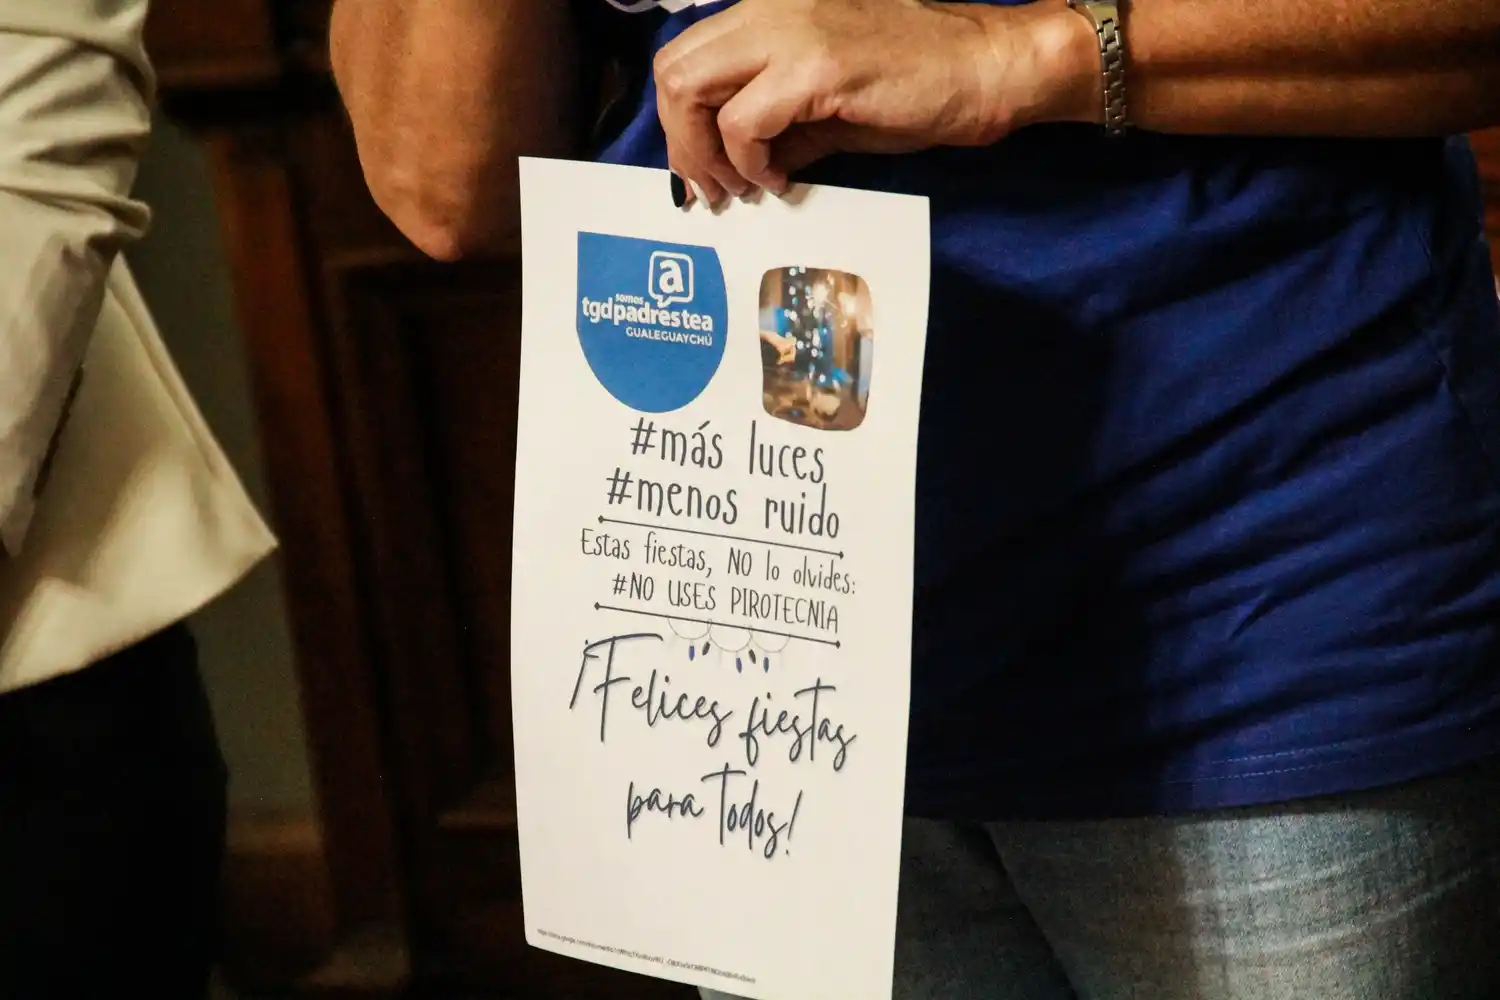 a
somos
tgdpadrestea
GUALEGUAYCHÚ
#más luces
#menos ruido
Estas fiestas, NO lo olvides:
#NO USES PIROTECNIA
¡Felices fiestas
para Todos!